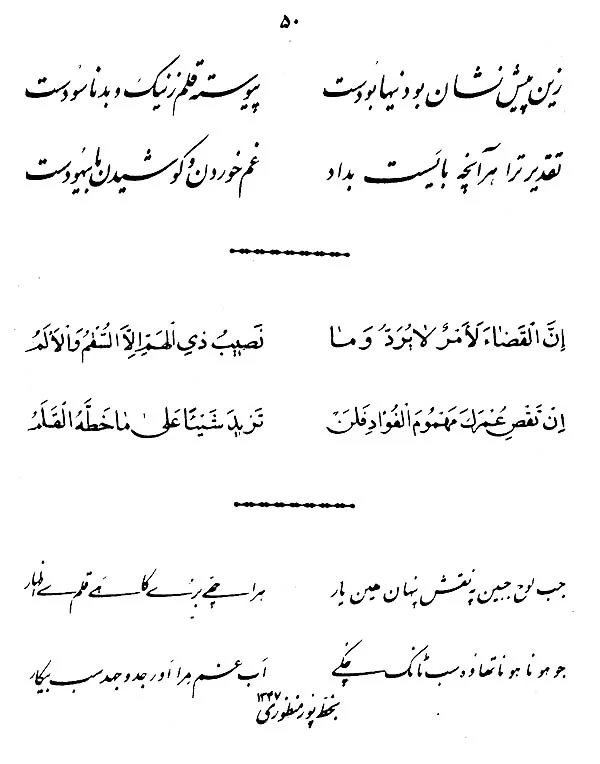 ۵۰
زین پیش نشان بودنیها بودست پیوسته قلم ز نیک و بد ناسودست
تقدیر ترا هر آنچه بایست بداد غم خوردن و کوشیدن ما بیهودست
إنَّ الْقَضَاءَ لَأَمْرٌ لَا يُرَدُّ وَمَا نَصِيبُ ذِي الْهَمِّ إلَّا السُّقْمُ وَالْأَلَمُ
إنْ تَقْضِ عُمْرَكَ مَهْمُومَ الْفُؤَادِ فَلَنْ تَزِيدَ شَيْئًا عَلَىٰ مَا خَطَّهُ الْقَلَمُ
جب لوح جبین پہ نقش پنہان ہین یار ہر اچھے برے کا ہے قلم سے اظہار
جو ہونا ہونا تھا وہ سب ٹانک چکے اب غم مرا اور جدوجہد سب بیکار
بخط پور منظوری ۱۳۴۷